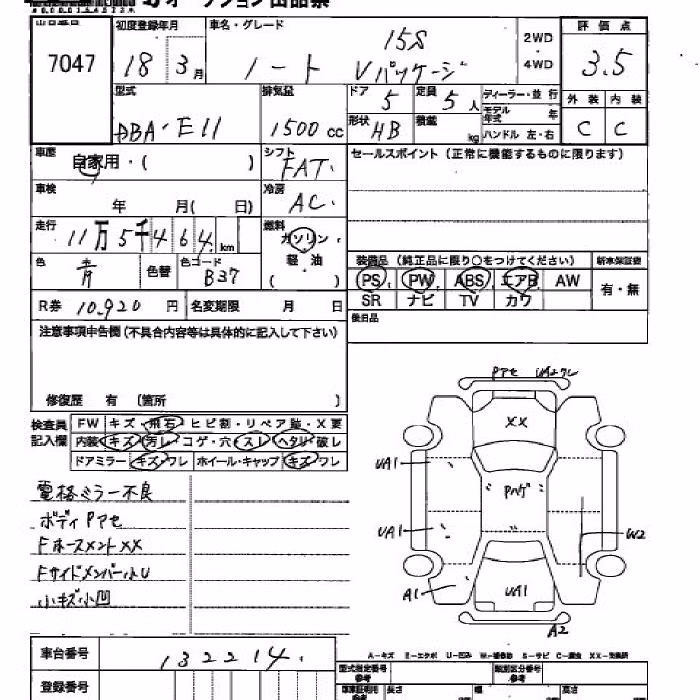 オークション出品票
出品番号 初度登録年月 車名・グレード 15S 2WD・4WD 評価点
7047 18 3月 ノート Vパッケージ 3.5
型式 排気量 ドア 5 定員 5人 ディーラー・並行 外装 内装
DBA・E11 1500cc 形状 HB 積載 kg モデル年式 年 C C
ハンドル 左・右
車歴 自家用・( ) シフト FAT. セールスポイント(正常に機能するものに限ります)
車検 年 月( 日) 冷房 AC.
走行 11万5千464km 燃料 ガソリン・軽・油( )
色 青 色替 色コード B37
装備品(純正品に限り○をつけてください) 新車保証書
PS PW ABS エアB AW 有・無
SR ナビ TV カワ
R券 10,920円 名変期限 月 日
後日品
注意事項申告欄(不具合内容等は具体的に記入して下さい)
修復歴 有 (箇所 )
検査員記入欄
FW キズ・飛石・ヒビ割・リペア跡・X要
内装 キズ・汚レ・コゲ・穴・スレ・ヘタリ・破レ
ドアミラー キズ・ワレ ホイール・キャップ キズ・ワレ
電格ミラー不良
ボディPアセ
Fホースメント XX
Fサイドメンバー小U
小キズ小凹
Pアセ UA2ワレ
XX
UA1
Pハゲ
UA1
W2
A1
UA1
A2
A-キズ E-エクボ U-凹み W-補修跡 S-サビ C-腐食 XX-交換済
車台番号 132214.
登録番号
型式指定番号 参考 類別区分番号 参考
長さ 幅 高さ